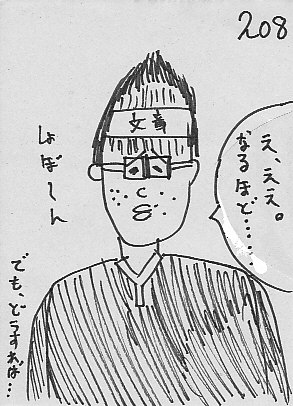 208
文章
え、ええ。
なるほど……
しょぼーん
でも、どうすれば…